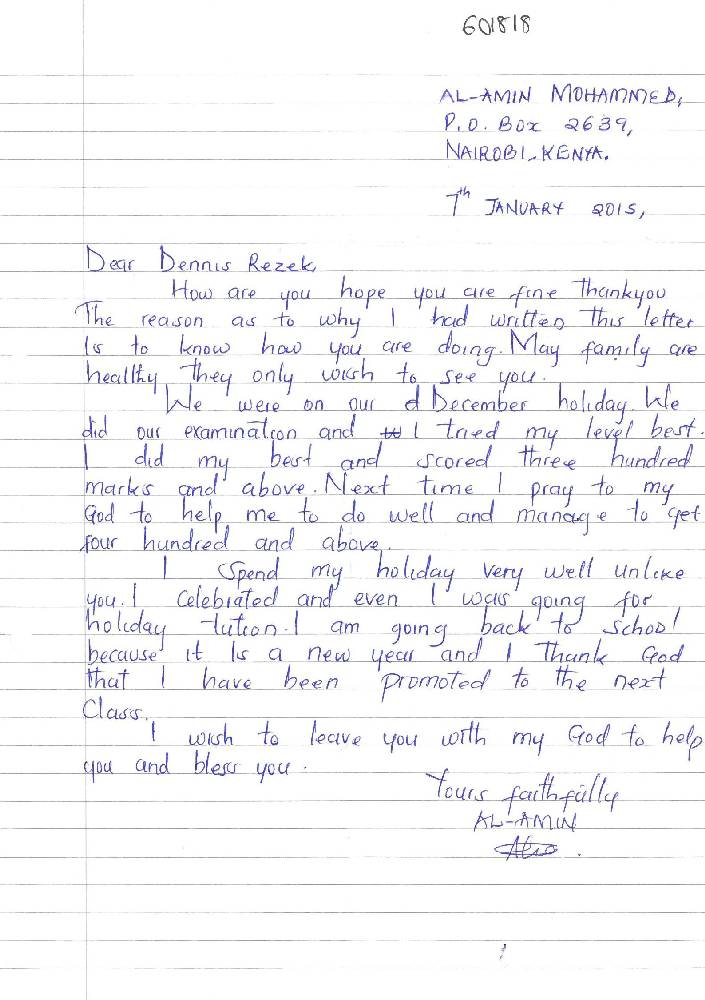 601818
AL-AMIN MOHAMMED,
P.O. BOX 2639,
NAIROBI-KENYA.
7th JANUARY 2015,
Dear Dennis Rezek,
How are you hope you are fine thankyou
The reason as to why I had written this letter
Is to know how you are doing. May family are
healthy they only wish to see you.
We were on our d December holiday. We
did our examination and I tried my level best.
I did my best and scored three hundred
marks and above. Next time I pray to my
God to help me to do well and manage to get
four hundred and above.
I spend my holiday very well unlike
you. I celebrated and even I was going for
holiday tution. I am going back to school
because it Is a new year and I Thank God
that I have been promoted to the next
Class.
I wish to leave you with my God to help
you and bless you.
Yours faithfully
AL-AMIN